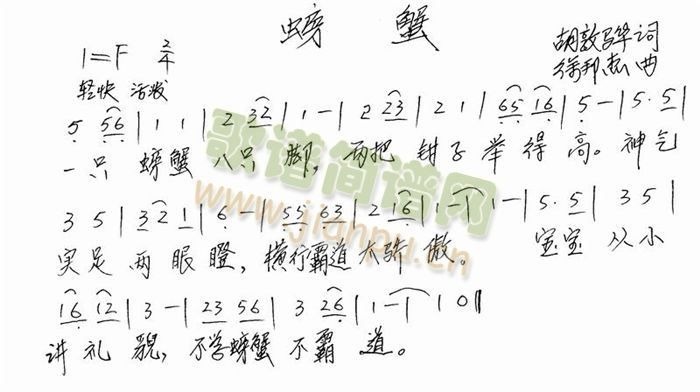 螃 蟹
1=F 2/4
胡敦骅词
轻快 活泼
徐邦杰曲
5 56 | 1 1 | 2 32 | 1 - | 2 23 | 2 1 | 65 16 | 5 - | 5. 5 |
一只 螃蟹 八只 脚, 两把 钳子 举 得 高。 神气
3 5 | 32 1 | 6 - | 55 63 | 2 16 | 1 - | 1 - | 5. 5 | 3 5 |
实足 两 眼 瞪, 横行霸道 太骄 傲。 宝宝 从小
16 12 | 3 - | 23 56 | 3 26 | 1 - | 1 0 ||
讲 礼 貌, 不学螃蟹 不霸 道。
歌谱简谱网
www.jianpu.cn